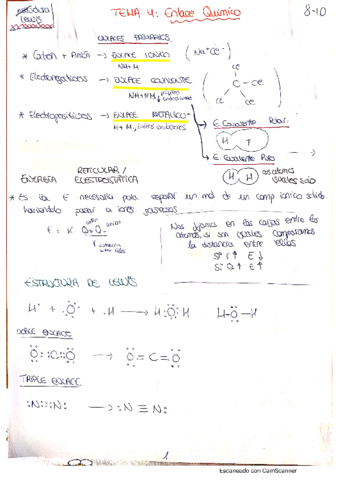 estructura
LEWIS
TEMA 4: Enlace Químico
8-10
ENLACES PRIMARIOS
* Catión + Anión → ENLACE IÓNICO (Na⁺Cl⁻)
NM + M
* Electronegativos → ENLACE COVALENTE
NM + NM
Cl
C - Cl
Cl
Cl
* Electropositivos → ENLACE METÁLICO
M + M,
→ E. Covalente Polar:
H F
→ E. Covalente Pola
H H
ENERGÍA RETICULAR / ELECTROSTÁTICA
* Es la E necesaria para separar un mol de un comp iónico sólido
haciéndolo pasar a iones gaseosos
E = K Q+Q-
r
catión
anión
Nos fijamos en las cargas entre los
átomos, si son iguales comparamos
la distancia entre ellos
Si r↑ E↓
Si Q↑ E↑
ESTRUCTURA DE LEWIS
H· + ·O· + ·H → H:O:H H-O-H
DOBLE ENLACE
O::C::O → O=C=O
TRIPLE ENLACE
:N:::N: → :N≡N:
1
Escaneado con CamScanner